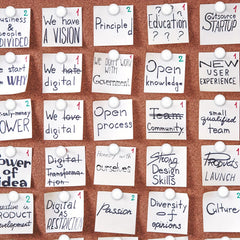 2
business &
people
DIVIDED
2
We have
A VISION
2
Principled
2
Education
? ? ?
1
Outsource
STARTUP
start
WHY
We hate
digital
We don't work
with
Government!
Open
knowledge
NEW
USER
EXPERIENCE
1
money
POWER
1
We love
digital
Open
process
Team
Community
1
small
qualified
team
Power of
idea
Digital
Transforma-
tion
with
ourselves
Strong
Design
Skills
1
Products
LAUNCH
2
in
PRODUCT
Development
2
Digital
AS
RESTRICTED
Passion
Diversity
of
opinions
2
Culture